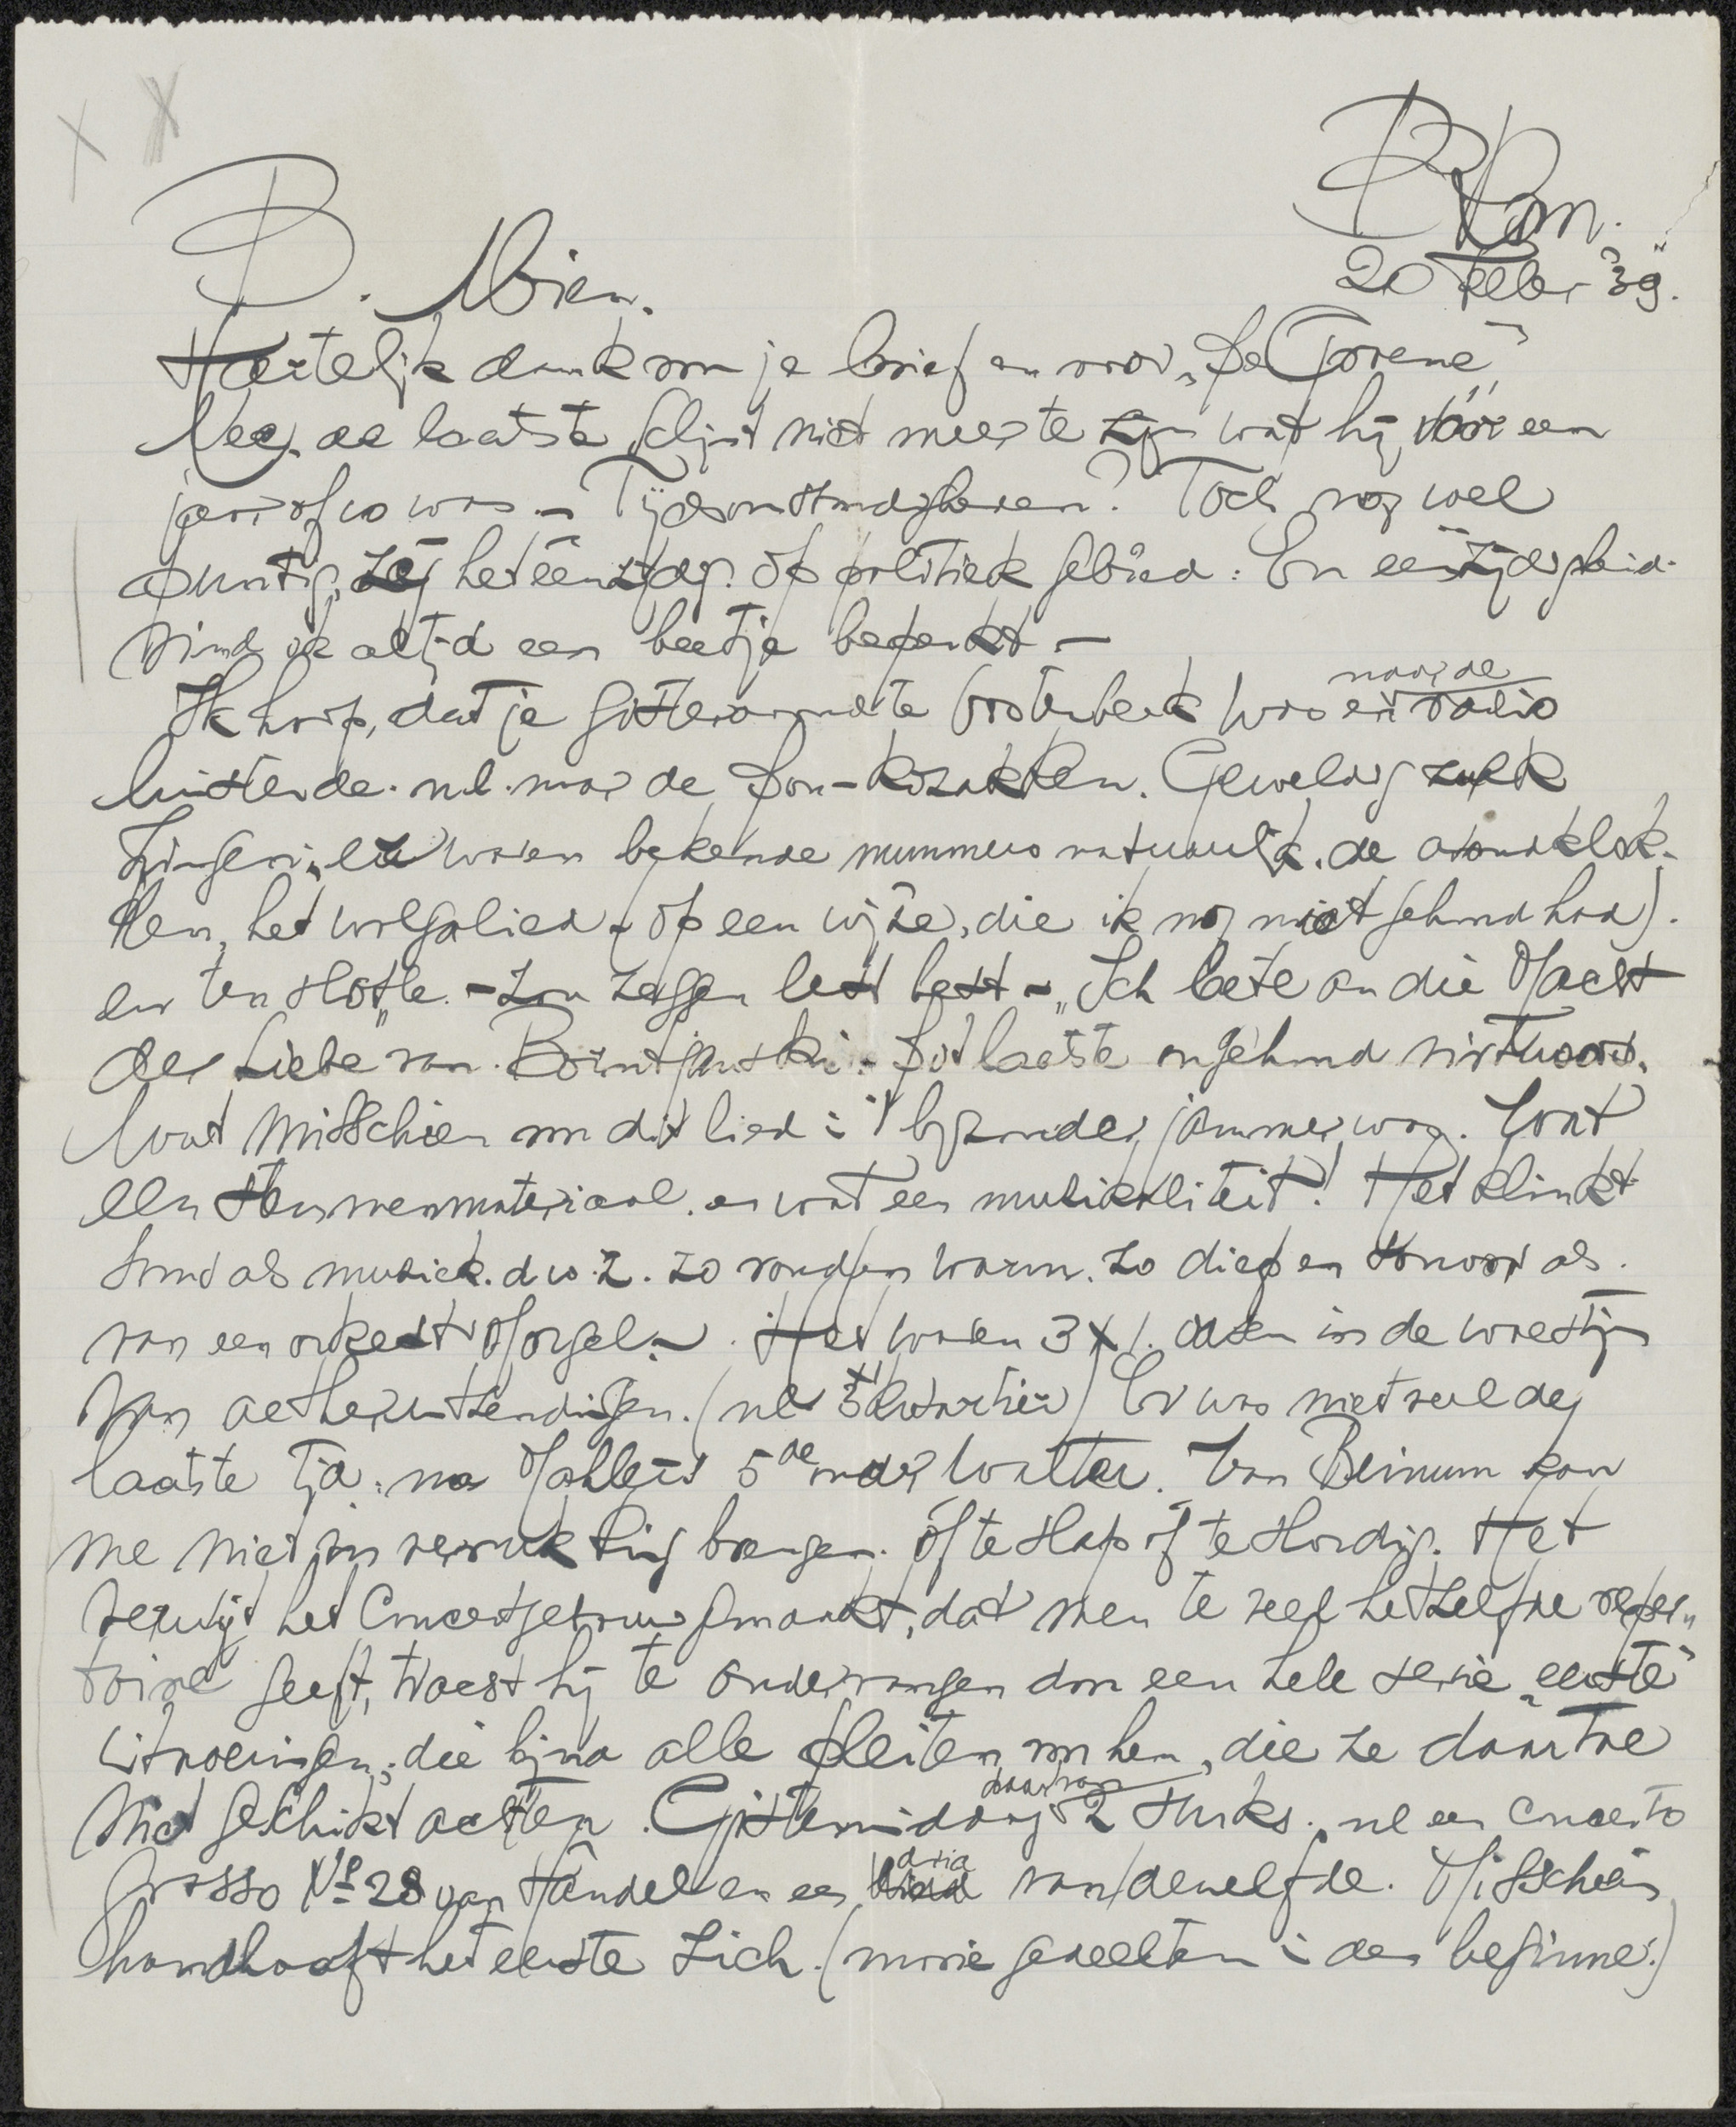 20 Febr '39.
B. Mien.
Hartelijk dank voor je brief en voor „De Groene”
Nee, de laatste schijnt niet meer te zijn wat hij vóór een
jaar of wo was – Tijdsomstandigheden? Toch nog wel
puntig, zij het eenzijdig. op politiek gebied: En eenzijdigheid
vind ik altijd een beetje beperkt –
Ik hoop, dat je gisteravond te Oosterbeek was en naar de radio
luisterde. nl. naar de Don-Kozakken. Geweldig zulk
zingen; er waren bekende nummers natuurlijk. de avondklok-
ken, het wolgalied – op een wijze, die ik nog niet gehoord had).
en ten slotte – zou zeggen lest best – „Ich bete an die Macht
der Liebe” van Borntjanski – Dit laatste ongehoord virtuoos.
Wat misschien voor dit lied i 't bijzonder jammer was. Wat
een stemmenmateriaal. en wat een muzikaliteit! Het klinkt
soms als muziek. d.w.z. zo rond en warm. zo diep en sonoor als
van een orkest of orgel. – Het waren 3 x 1. oasen in de woestijn
van aetheruitzendingen. (nl 3 x 1 kwartier) Er was niet veel de
laatste tijd. na Mahlers 5de onder Walter. Van Beinum kan
me niet in verrukking brengen. óf te slap óf te slordig. Het
verwijt het Concertgebouw gemaakt, dat men te veel hetzelfde reper-
toire geeft, tracht hij te ondervangen door een hele serie „eerste”
uitvoeringen; die bijna alle pleiten voor hen, die ze daartoe
niet geschikt achten. Gistermiddag daarvan 2 stuks. nl een Concerto
Grosso No 28 van Händel en een aria van denzelfde. Misschien
handhaaft het eerste zich. (mooie gedeelten i den beginne.)